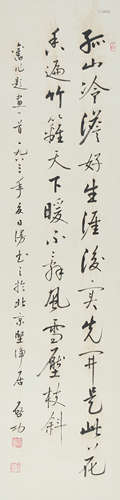 孤山冷澹好生涯後實先開是此花
香遍竹籬天下暖不辭風雪壓枝斜
舊作題畫一首一九八三年夏日漫書之於北京堅淨居 啟功